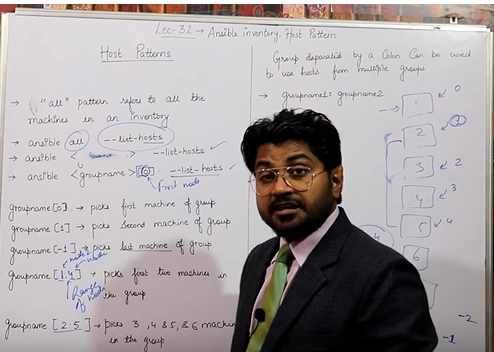 Lec-32 → Ansible inventory, Host Pattern
Host Patterns
→ "all" pattern refers to all the
machines in an inventory
→ ansible all --list-hosts
→ ansible < > --list-hosts
→ ansible <groupname> [0] --list-hosts
First node
groupname [0] → picks first machine of group
groupname [1] → picks second machine of group
groupname [-1] → picks last machine of group
groupname → picks first two machines in
the group
Range of Nodes
groupname [2:5] → picks 3, 4, 5, & 6 machin
in the group
Group separated by a Colon Can be used
to use hosts from multiple groups
→ groupname1: groupname2
1 0
2 1
3 2
4 3
5 4
6
-2
-1